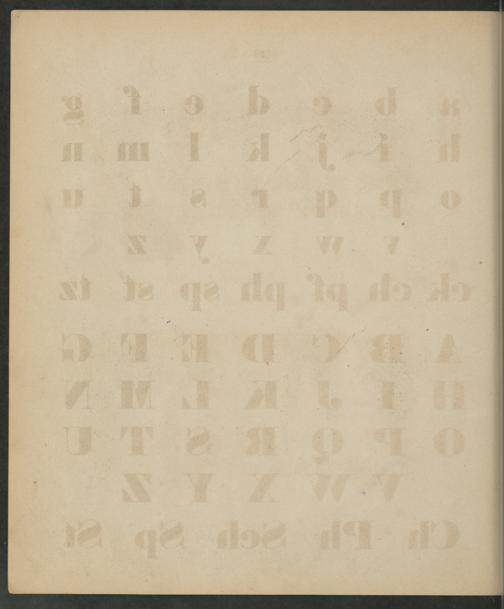 a b c d e f g
h i j k l m n
o p q r s t u
v w x y z
ck ch pf ph sp st tz
A B C D E F G
H I J K L M N
O P Q R S T U
V W X Y Z
Ch Ph Sch Sp St